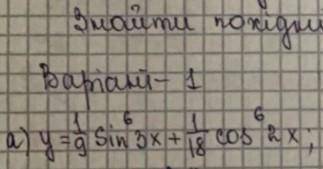 Знайти похідні
Варіант - 1
а) y = 1/9 sin⁶ 3x + 1/18 cos⁶ 2x;